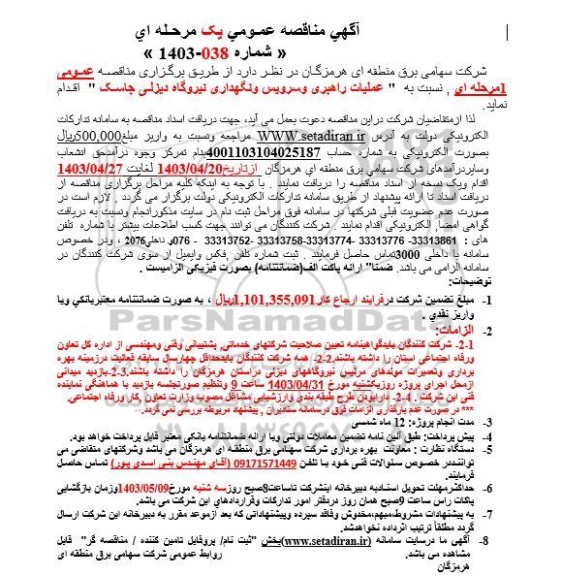 آگهي مناقصه عمومي يک مرحله اي
« شماره 038-1403 »
شرکت سهامی برق منطقه ای هرمزگان در نظر دارد از طریق برگزاری مناقصه عمومی
1مرحله ای , نسبت به " عملیات راهبری وسرویس ونگهداری نیروگاه دیزلی جاسک " اقدام
نماید.
لذا ازمتقاضیان شرکت دراین مناقصه دعوت بعمل می آید، جهت دریافت اسناد مناقصه به سامانه تدارکات
الکترونیکی دولت به آدرس WWW.setadiran.ir مراجعه ونسبت به واریز مبلغ500,000ریال
بصورت الکترونیکی به شماره حساب 4001103104025187بنام تمرکز وجوه درآمدحق انشعاب
وسایردرآمدهای شرکت سهامي برق منطقه اي هرمزگان ازتاریخ1403/04/20 لغایت 1403/04/27
اقدام ویک نسخه از اسناد مناقصه را دریافت نمایند . با توجه به اینکه کلیه مراحل برگزاری مناقصه از
دریافت اسناد تا ارائه پیشنهاد از طریق سامانه تدارکات الکترونیکی دولت برگزار می گردد , لازم است در
صورت عدم عضویت قبلی شرکتها در سامانه فوق مراحل ثبت نام در سایت مذکورانجام ونسبت به دریافت
گواهی امضا, الکترونیکی اقدام نمایند .شرکت کنندگان می توانند جهت کسب اطلاعات بیشتر با شماره تلفن
های : 33313861- 33313776 -33313774- 33313758 -33313752 - 076وداخلی2076 ، ودر خصوص
سامانه با داخلی 3000تماس حاصل فرمایند . ثبت شماره تلفن ,فکس وایمیل از سوی شرکت کنندگان در
سامانه الزامی می باشد. ضمنا" ارائه پاکت الف(ضمانتنامه) بصورت فیزیکی الزامیست .
توضیحات:
1- مبلغ تضمین شرکت درفرایند ارجاع کار1,101,355,091ریال ، به صورت ضمانتنامه معتبربانکی ویا
واریز نقدی .
2- الزامات:
2-1- شرکت کنندگان بایدگواهینامه تعیین صلاحیت شرکتهای خدماتی, پشتیبانی وفنی ومهندسی از اداره کل تعاون
ورفاه اجتماعی استان را داشته باشند.2-2- همه شرکت کنندگان بایدحداقل چهارسال سابقه فعالیت درزمینه بهره
برداری وتعمیرات مولدهای دیزلی نیروگاههای دیزلی دراستان هرمزگان را داشته باشند.2-3-بازدید میدانی
ازمحل اجرای پروژه روزیکشنبه مورخ 1403/04/31 ساعت 9 وتنظیم صورتجلسه بازدید با هماهنگی نماینده
فنی این شرکت .2-4- دارابودن طرح طبقه بندی وارزشیابی مشاغل مصوب وزارت تعاون ,کار ورفاه اجتماعی.
*** در صورت عدم بارگذاری الزامات فوق درسامانه ستادیران , پیشنهاد مربوطه بررسی نمی گردد.
3- مدت انجام پروژه: 12 ماه شمسی
4- پیش پرداخت: طبق آئین نامه تضمین معاملات دولتی وبا ارائه ضمانتنامه بانکی معتبر قابل پرداخت خواهد بود.
5- دستگاه نظارت : معاونت بهره برداری شرکت سهامی برق منطقه ای هرمزگان می باشد وشرکتهای متقاضی می
توانند در خصوص سئوالات فنی خود با تلفن 09171571449 (آقای مهندس بنی اسدی پور) تماس حاصل
فرمایند.
6- حداکثرمهلت تحویل اسنادبه دبیرخانه اینشرکت تاساعت8صبح روزسه شنبه مورخ1403/05/09وزمان بازگشایی
پاکات راس ساعت 9صبح همان روز دردفتر امور تدارکات وقراردادهای این شرکت می باشد.
7- به پیشنهادات مشروط،مبهم،مخدوش وفاقد سپرده وپیشنهاداتی که بعد ازموعد مقرر به دبیرخانه این شرکت ارسال
گردد مطلقاً ترتیب اثرداده نخواهدشد.
8- آگهی ما درسایت سامانه (www.setadiran.ir)بخش "ثبت نام/ پروفایل تامین کننده / مناقصه گر" قابل
مشاهده می باشد. روابط عمومی شرکت سهامی برق منطقه ای
هرمزگان
ParsNamadData